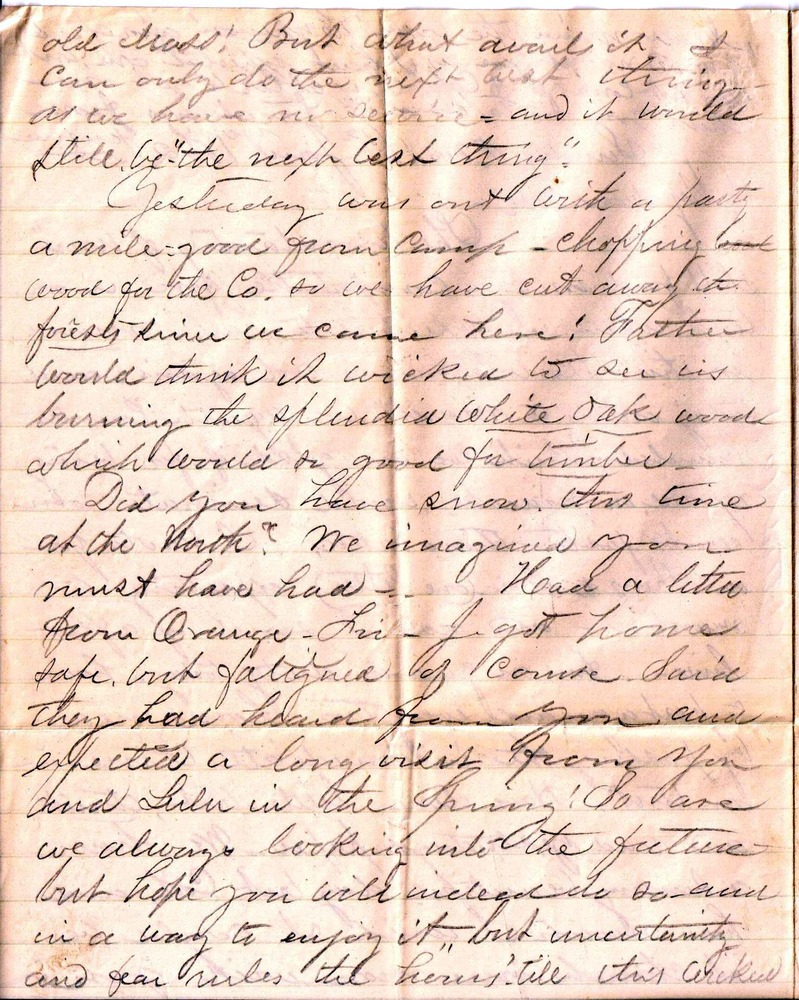 old Mass! But what avails it I
can only do the next best thing
as we have no - and it would
still be "the next best thing".
Yesterday was out with a party
a mile-good from camp - chopping
wood for the Co. so we have cut away the
forests since we came here! Father
would think it wicked to see us
burning the splendid white oak wood
which would so good for timber -
Did you have snow this time
at the North? We imagined you
must have had - Had a letter
from Orange - - J. got home
safe, but fatigued of course. Said
they had heard from you and
expected a long visit from you
and Lulu in the Spring! So are
we always looking into the future
but hope you will indeed do so and
in a way to enjoy it, but uncertainty
and fear rules the hours 'till this wicked